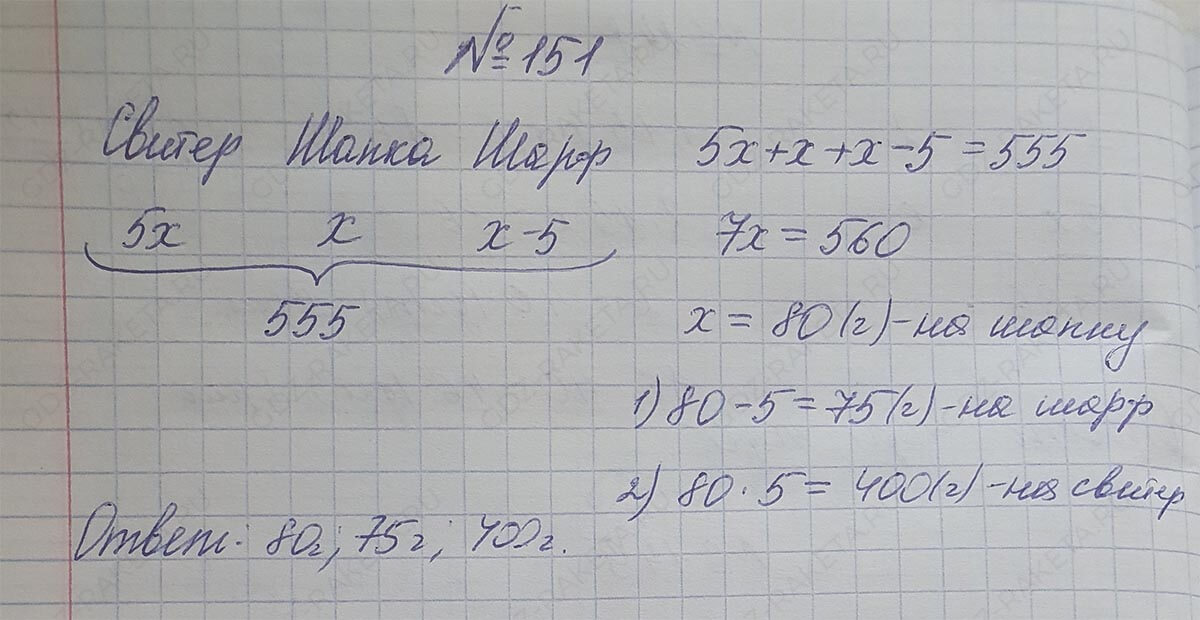 №151
Свитер Шапка Шарф
5x x x-5
555
5x+x+x-5=555
7x=560
x=80(г)-на шапку
1) 80-5=75(г)-на шарф
2) 80·5=400(г)-на свитер
Ответ: 80г; 75г; 400г.